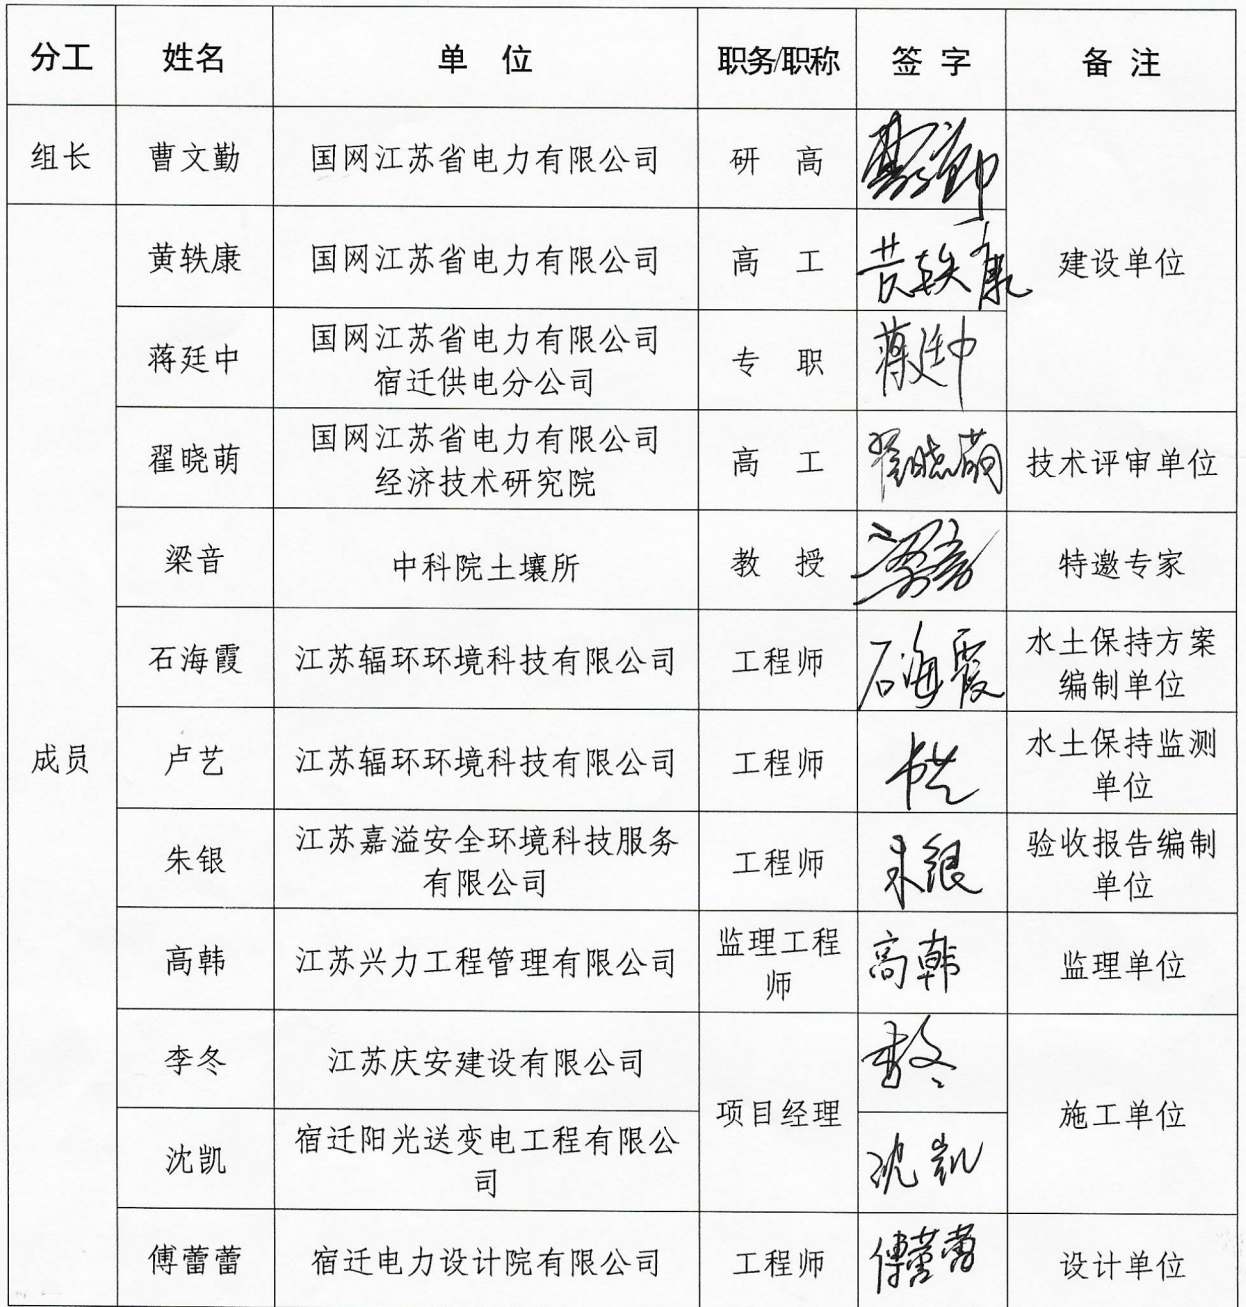 分工 姓名 单 位 职务/职称 签 字 备 注
组长 曹文勤 国网江苏省电力有限公司 研 高 曹文勤
建设单位
成员
黄轶康 国网江苏省电力有限公司 高 工 黄轶康
蒋廷中 国网江苏省电力有限公司
宿迁供电分公司 专 职 蒋廷中
翟晓萌 国网江苏省电力有限公司
经济技术研究院 高 工 翟晓萌 技术评审单位
梁音 中科院土壤所 教 授 梁音 特邀专家
石海霞 江苏辐环环境科技有限公司 工程师 石海霞 水土保持方案
编制单位
卢艺 江苏辐环环境科技有限公司 工程师 卢艺 水土保持监测
单位
朱银 江苏嘉溢安全环境科技服务
有限公司 工程师 朱银 验收报告编制
单位
高韩 江苏兴力工程管理有限公司 监理工程
师 高韩 监理单位
李冬 江苏庆安建设有限公司 项目经理 李冬 施工单位
沈凯 宿迁阳光送变电工程有限公
司 沈凯
傅蕾蕾 宿迁电力设计院有限公司 工程师 傅蕾蕾 设计单位